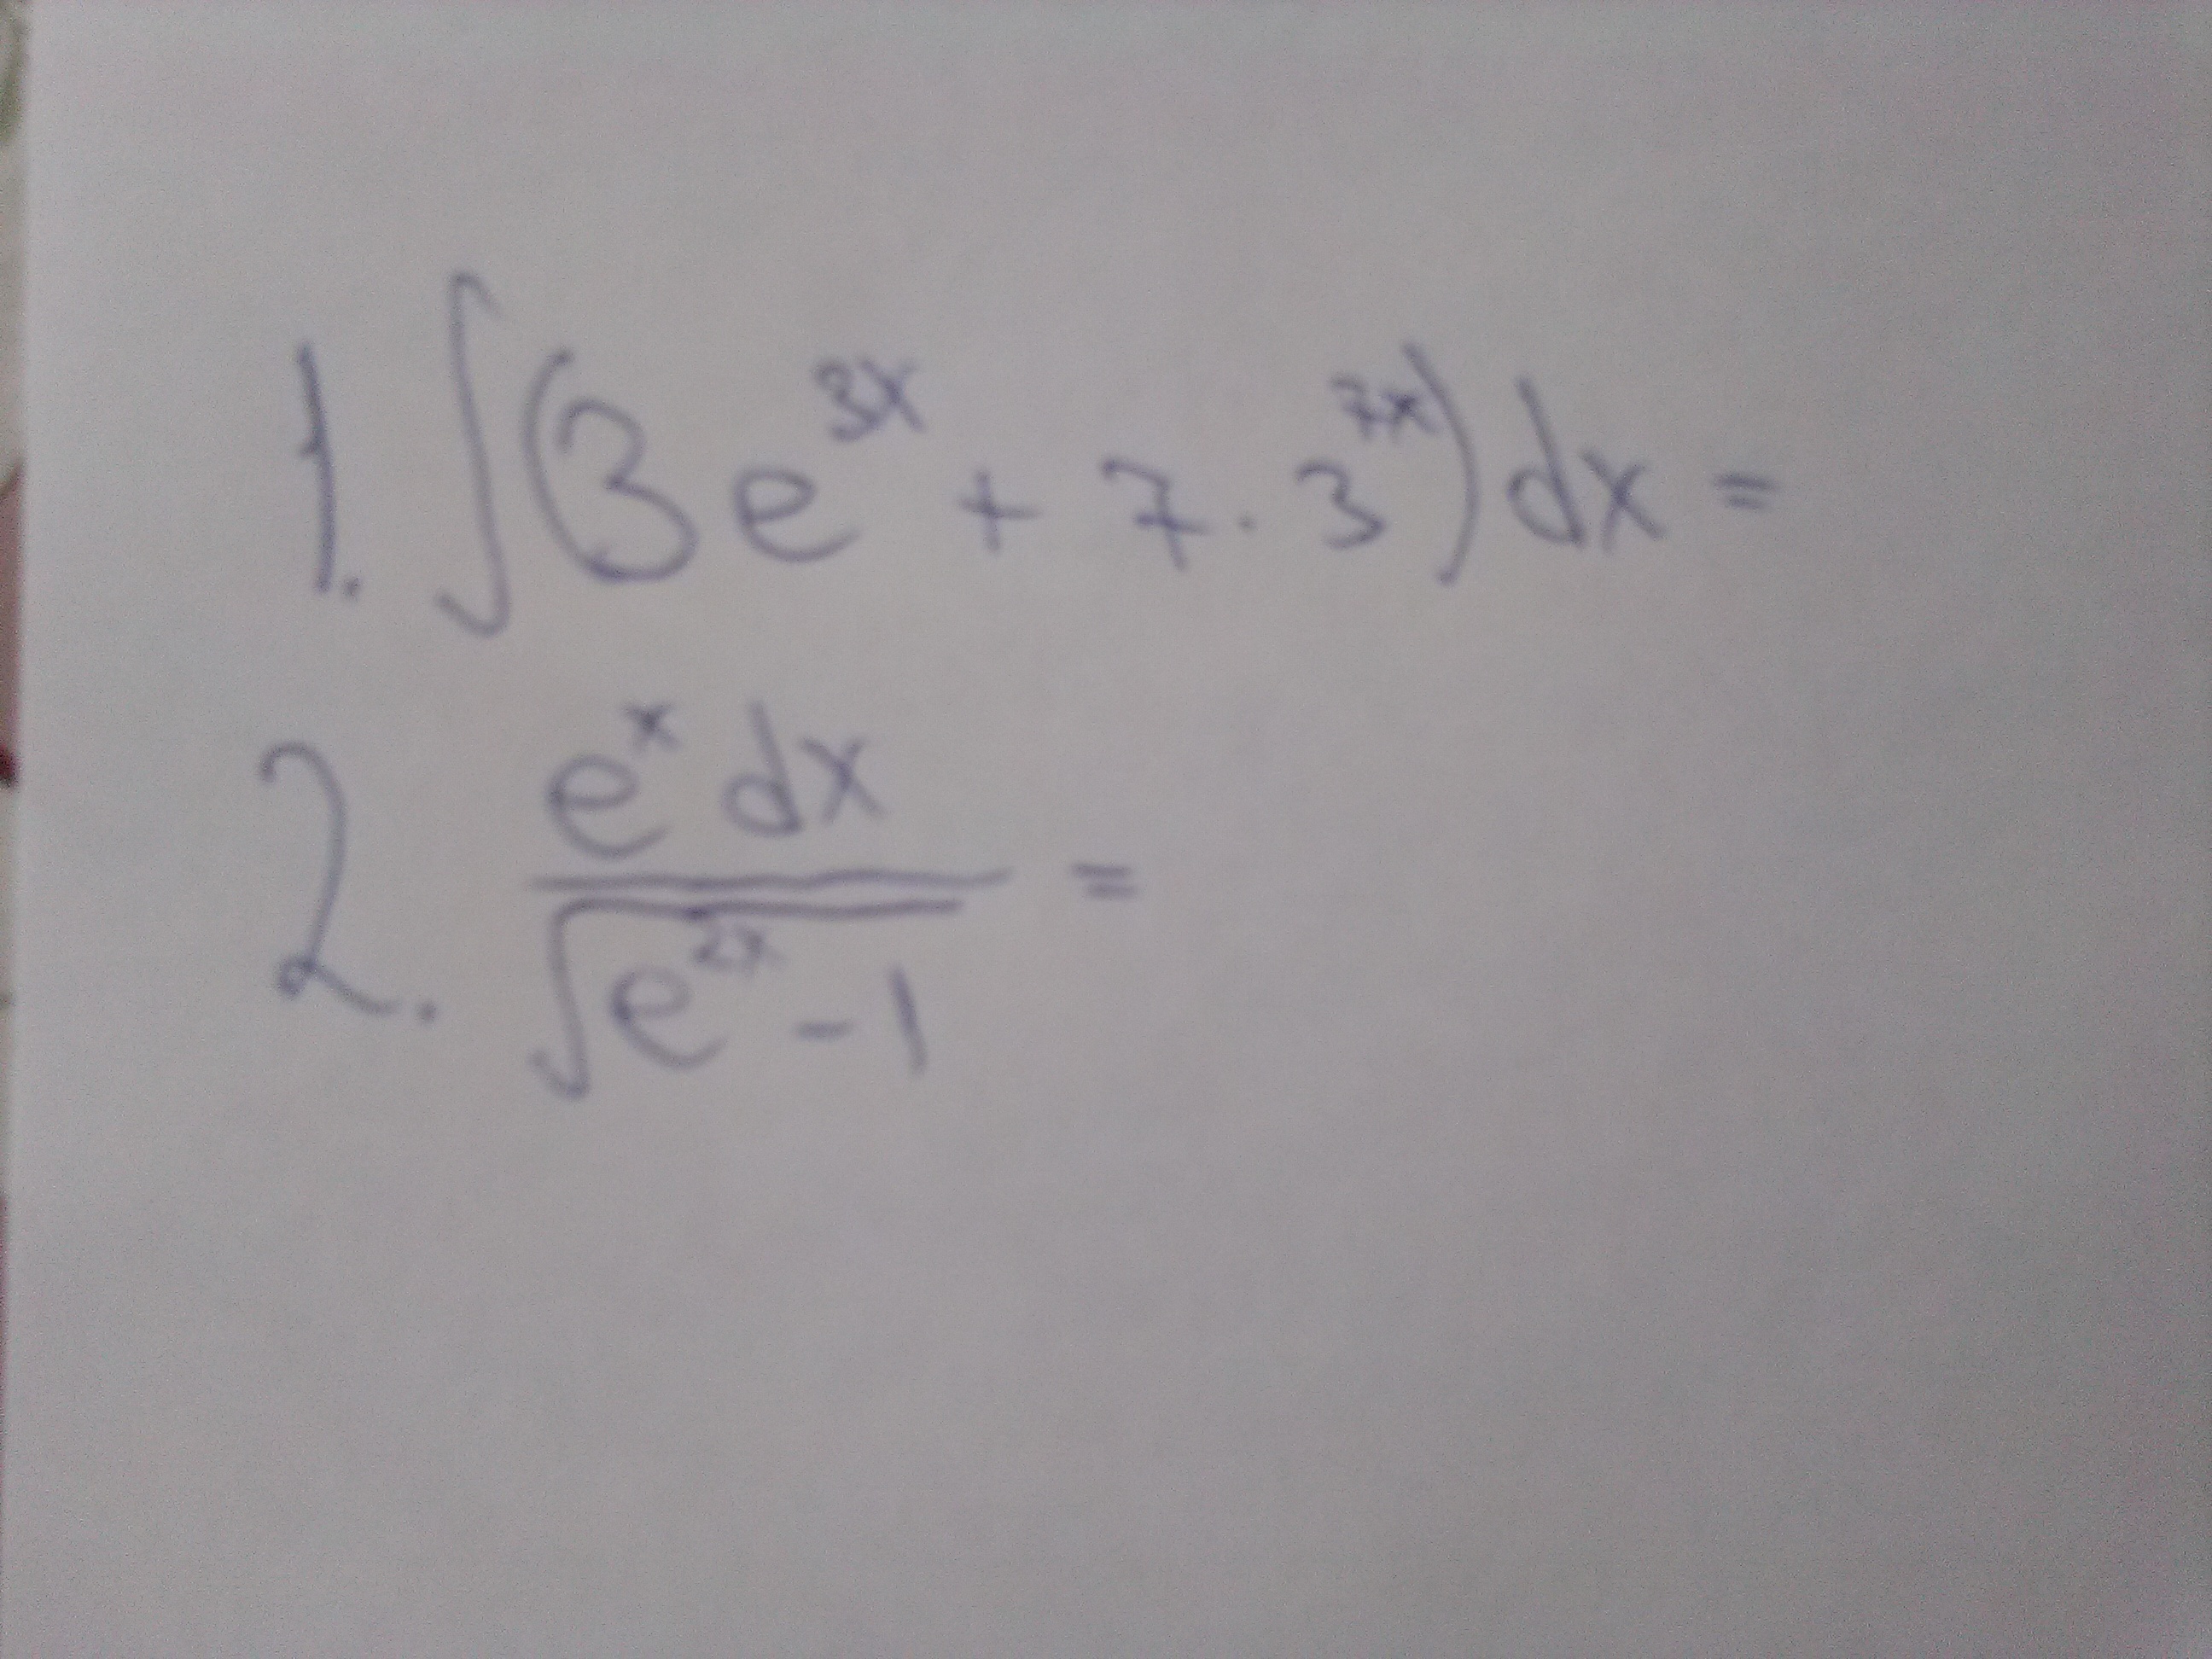 1. ∫(3e^{3x} + 7 · 3^{7x}) dx =
2. \frac{e^x dx}{\sqrt{e^{2x} - 1}} =